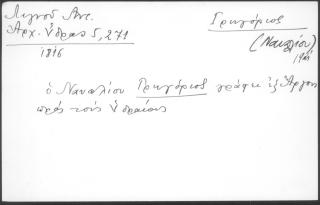 Λιγνού Αντ.
Αρχ. Ύδρας 5, 271
1816
Γρηγόριος
(Ναυπλίου)
ὁ Ναυπλίου Γρηγόριος γράφει ἐξ Ἄργους
πρὸς τοὺς Ὑδραίους